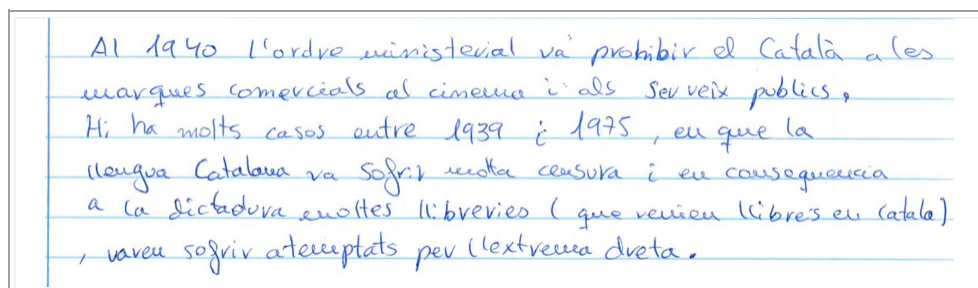 Al 1940 l'ordre ministerial va prohibir el Català a les
marques comercials al cinema i als serveix publics.
Hi ha molts casos entre 1939 i 1975, en que la
llengua Catalana va sofrir molta censura i en consequencia
a la dictadura moltes llibreries (que venien llibres en Catala)
, varen sofrir atemptats per l'extrema dreta.